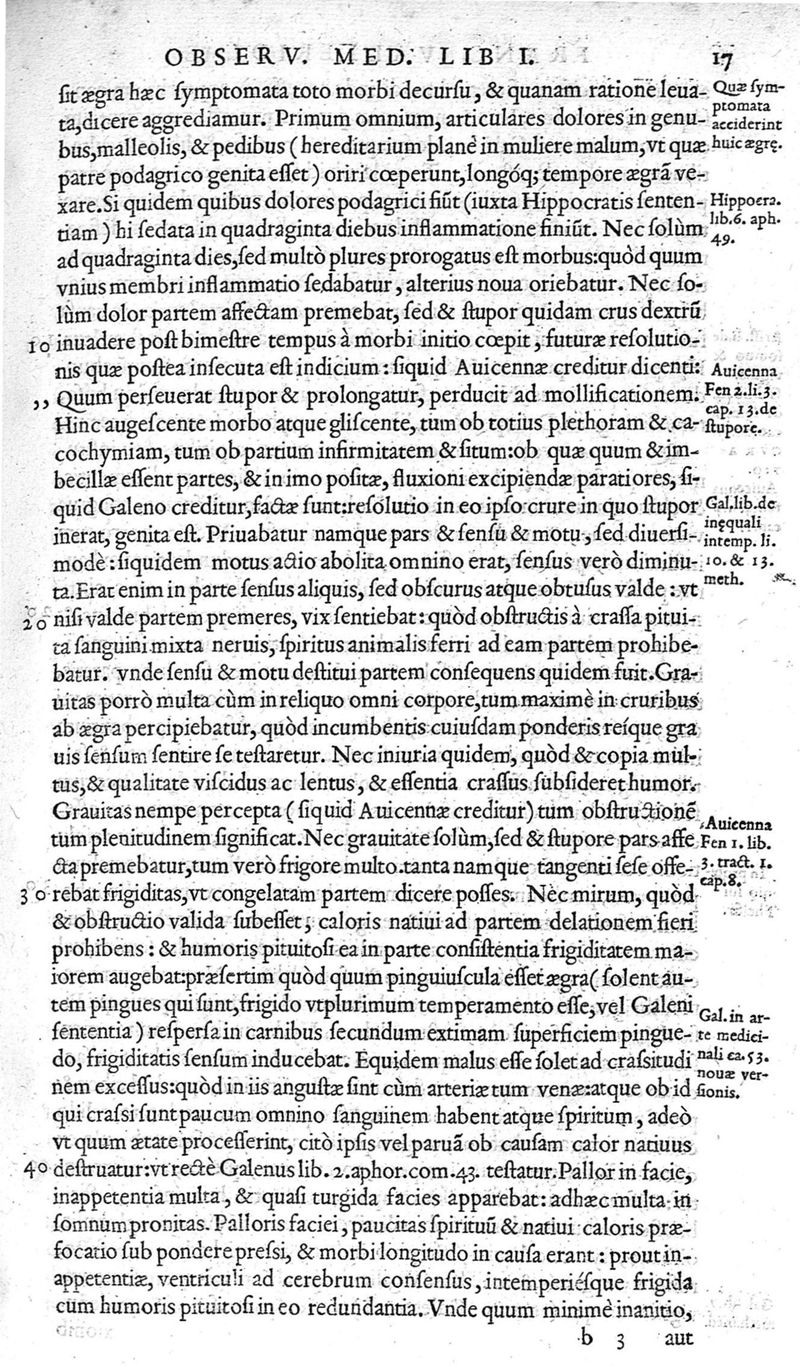 OBSERV. MED. LIB I. 17
ſit ægra hæc ſymptomata toto morbi decurſu, & quanam ratione leua-
ta, dicere aggrediamur. Primum omnium, articulares dolores in genu-
bus, malleolis, & pedibus (hereditarium planè in muliere malum, vt quæ
patre podagrico genita eſſet) oriri cœperunt, longóq; tempore ægrã ve-
xare. Si quidem quibus dolores podagrici fiũt (iuxta Hippocratis ſenten-
tiam) hi ſedata in quadraginta diebus inflammatione finiũt. Nec ſolùm
ad quadraginta dies, ſed multò plures prorogatus eſt morbus: quòd quum
vnius membri inflammatio ſedabatur, alterius noua oriebatur. Nec ſo-
lùm dolor partem affectam premebat, ſed & ſtupor quidam crus dextrũ
10 inuadere poſt bimeſtre tempus à morbi initio cœpit, futuræ reſolutio-
nis quæ poſtea inſecuta eſt indicium: ſiquid Auicennæ creditur dicenti:
,, Quum perſeuerat ſtupor & prolongatur, perducit ad mollificationem.
Hinc augeſcente morbo atque gliſcente, tum ob totius plethoram & ca-
cochymiam, tum ob partium infirmitatem & ſitum: ob quæ quum & im-
becillæ eſſent partes, & in imo poſitæ, fluxioni excipiendæ paratiores, ſi-
quid Galeno creditur, factæ ſunt: reſolutio in eo ipſo crure in quo ſtupor
inerat, genita eſt. Priuabatur namque pars & ſenſu & motu, ſed diuerſi-
modè: ſiquidem motus actio abolita omnino erat, ſenſus verò diminu-
ta. Erat enim in parte ſenſus aliquis, ſed obſcurus atque obtuſus valde: vt
20 niſi valde partem premeres, vix ſentiebat: quòd obſtructis à craſſa pitui-
ta ſanguini mixta neruis, ſpiritus animalis ferri ad eam partem prohibe-
batur. vnde ſenſu & motu deſtitui partem conſequens quidem fuit. Gra-
uitas porrò multa cùm in reliquo omni corpore, tum maximè in cruribus
ab ægra percipiebatur, quòd incumbentis cuiuſdam ponderis reíque gra
uis ſenſum ſentire ſe teſtaretur. Nec iniuria quidem, quòd & copia mul-
tus, & qualitate viſcidus ac lentus, & eſſentia craſſus ſubſideret humor.
Grauitas nempe percepta (ſiquid Auicennæ creditur) tum obſtructionẽ
tum plenitudinem ſignificat. Nec grauitate ſolùm, ſed & ſtupore pars affe
cta premebatur, tum verò frigore multo. tanta namque tangenti ſeſe offe-
30 rebat frigiditas, vt congelatam partem dicere poſſes. Nec mirum, quòd
& obſtructio valida ſubeſſet, caloris natiui ad partem delationem fieri
prohibens: & humoris pituitoſi ea in parte conſiſtentia frigiditatem ma-
iorem augebat: præſertim quòd quum pinguiuſcula eſſet ægra (ſolent au-
tem pingues qui ſunt, frigido vtplurimum temperamento eſſe, vel Galeni
ſententia) reſperſa in carnibus ſecundum extimam ſuperficiem pingue-
do, frigiditatis ſenſum inducebat. Equidem malus eſſe ſolet ad craſsitudi
nem exceſſus: quòd in iis anguſtæ ſint cùm arteriæ tum venæ: atque ob id
qui craſſi ſunt paucum omnino ſanguinem habent atque ſpiritum, adeò
vt quum ætate proceſſerint, citò ipſis vel paruã ob cauſam calor natiuus
40 deſtruatur: vt rectè Galenus lib. 2. aphor. com. 43. teſtatur. Pallor in facie,
inappetentia multa, & quaſi turgida facies apparebat: adhæc multa in
ſomnum pronitas. Palloris faciei, paucitas ſpirituũ & natiui caloris præ-
focatio ſub pondere preſsi, & morbi longitudo in cauſa erant: prout in-
appetentiæ, ventriculi ad cerebrum conſenſus, intemperiéſque frigida
cum humoris pituitoſi in eo redundantia. Vnde quum minimè inanitio,
b 3 aut
Quæ ſym-
ptomata
acciderint
huic ægrę.
Hippocra.
lib. 6. aph.
49.
Auicenna
Fen 2. li. 3.
cap. 13. de
ſtupore.
Gal. lib. de
inęquali
intemp. li.
10. & 13.
meth.
Auicenna
Fen 1. lib.
3. tract. 1.
cap. 8.
Gal. in ar-
te medici-
nali ca. 53.
nouæ ver-
ſionis.